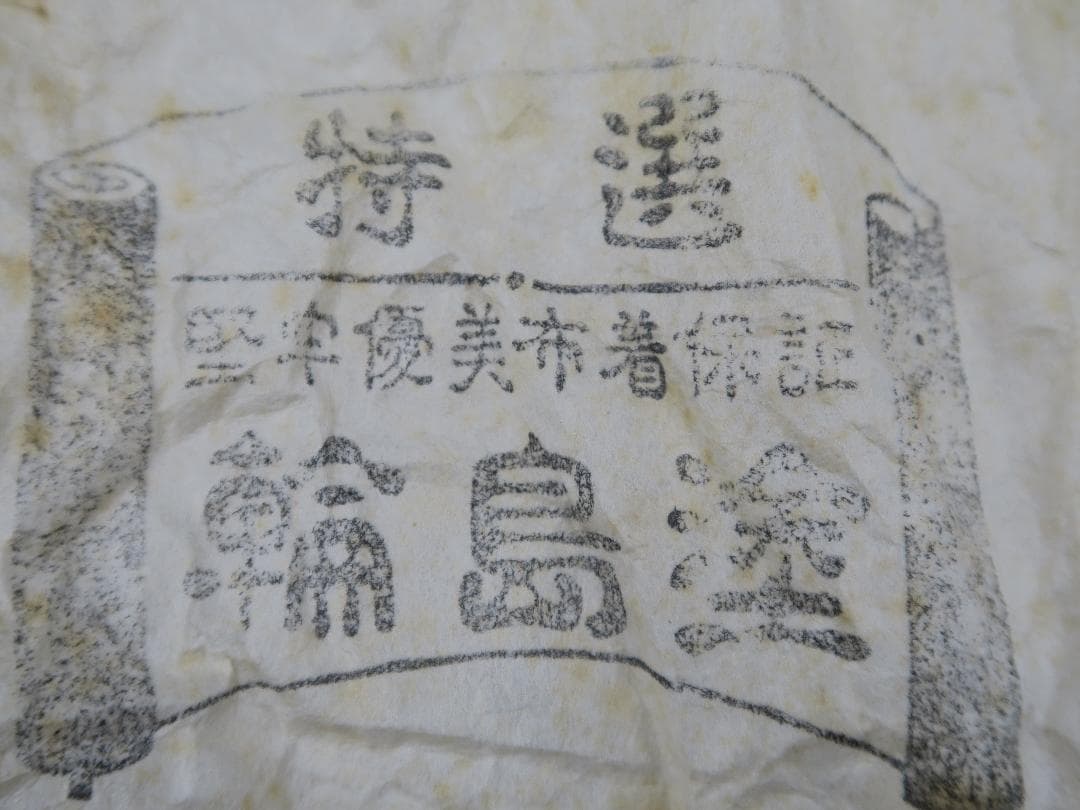 特選
堅牢優美布着保証
輪島塗